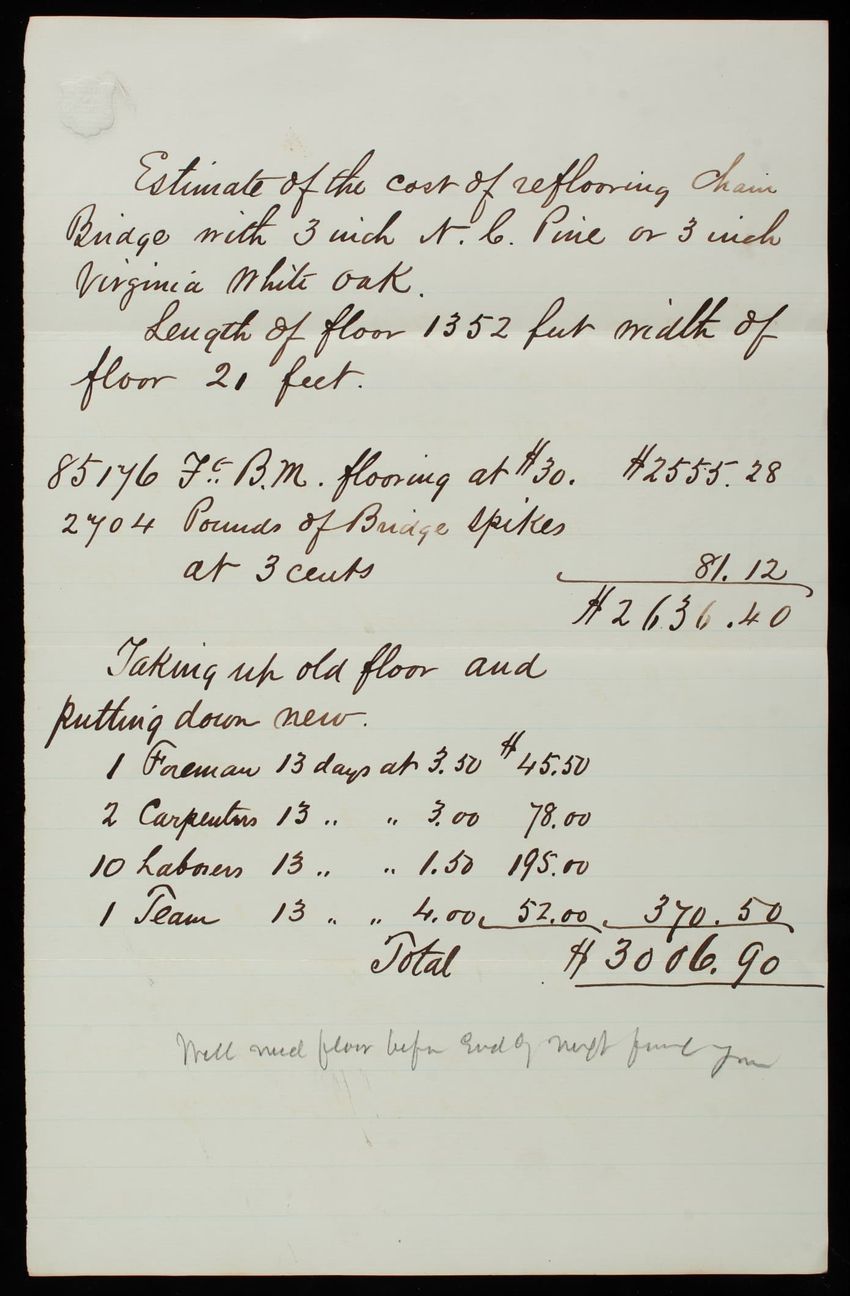 Estimate of the cost of reflooring Chain
Bridge with 3 inch N. C. Pine or 3 inch
Virginia White Oak.
Length of floor 1352 feet width of
floor 21 feet.
85176 Ft. B.M. flooring at $30. $2555.28
2704 Pounds of Bridge Spikes
at 3 cents 81.12
$2636.40
Taking up old floor and
putting down new.
1 Foreman 13 days at 3.50 $45.50
2 Carpenters 13 " " 3.00 78.00
10 Laborers 13 " " 1.50 195.00
1 Team 13 " " 4.00 52.00 370.50
Total $3006.90
Will need floor before End of next year